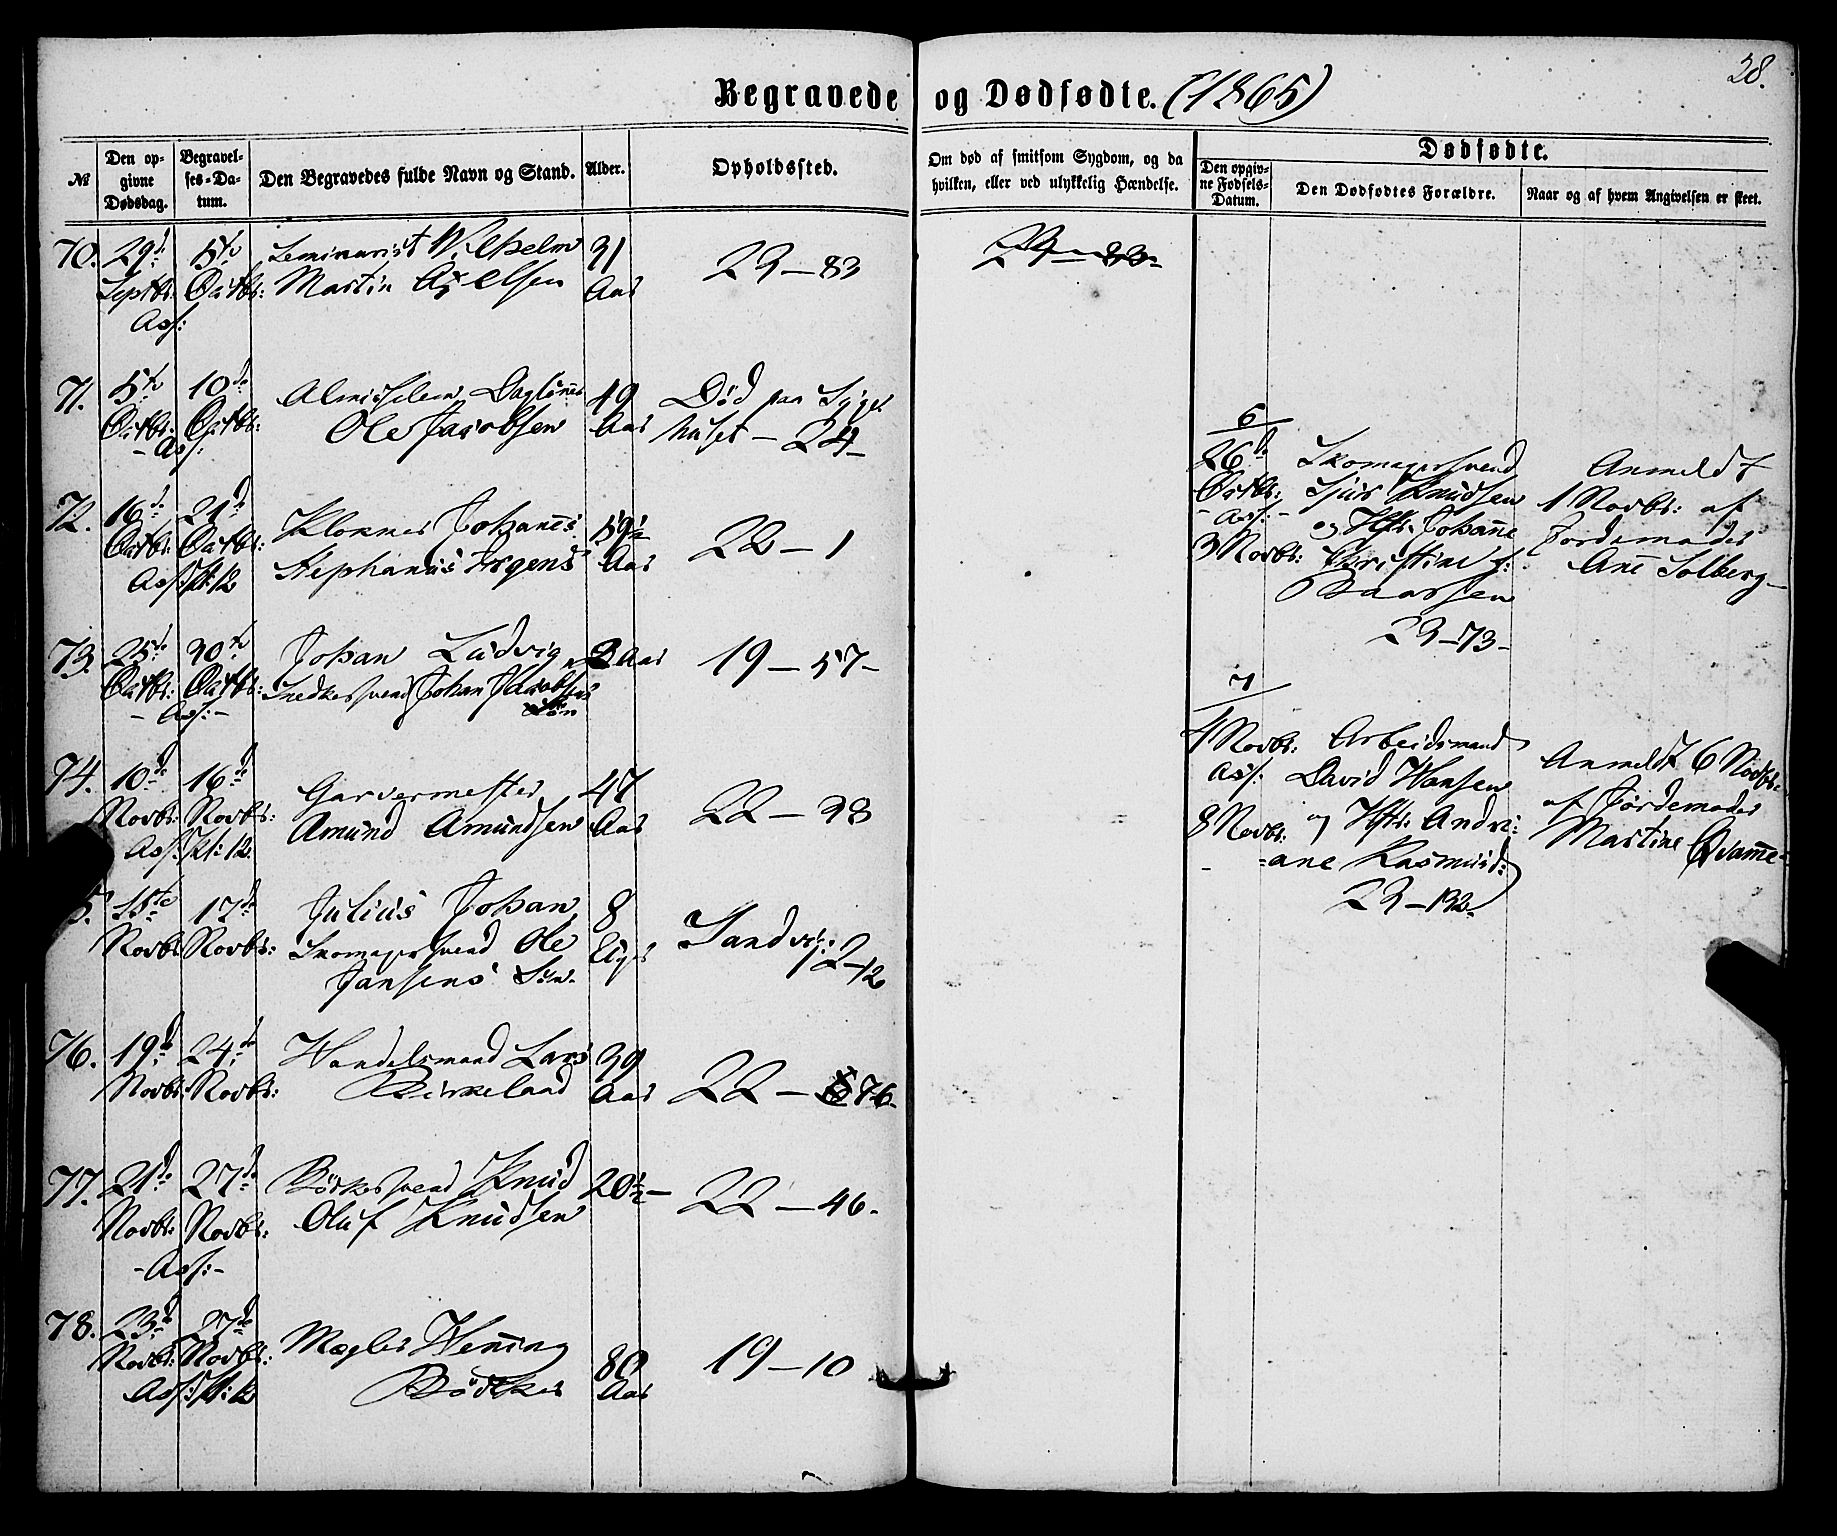 28.
Begravede og Dødfødte. (1865)
№
Den opgivne Dødsdag.
Begravelses-Datum.
Den Begravedes fulde Navn og Stand.
Alder.
Opholdssted.
Om død af smitsom Sygdom, og da
hvilken, eller ved ulykkelig Hændelse.
Dødfødte.
Den opgivne Fødsels-Datum.
Den Dødfødtes Forældre.
Naar og af hvem Angivelsen er skeet.
70. 29d 5te Seminarist Vilhelm 31
Septbr: Octbr: Martin Axelsen Aar 23-83
Ass:
71. 5te 10de Almisselem Dagløner 49 Død paa Syge
Octbr: Octbr: Ole Jacobsen Aar huset - 24-
- Ass:
72. 16d 21d Klokker Johannes 59½
Octbr: Octbr: Stephanus Irgens Aar 22-1
Ass: Kl: 12
73. 25de 30te Johan Ludvig 2 Aar 19-57-
Octbr: Octbr: Snedkersvend Johan Jacobsens
- Ass: - Søn
74. 10de 16de Garvermester 47
Novbr: Novbr: Amund Amundsen Aar 22-38
Ass: Kl: 12
5. 17de Julius Johan 8
Novbr: Novbr: Skomagersvend Ole Uger Sandvig:
Jansens Søn. 12-12
76. 19d 24d Handelsmand Lars 39
Novbr: Novbr: Birkeland Aar 22-76-
77. 21de 27de Bødkersvend Knud 20½ - 22-46.
Novbr: Novbr: Oluf Knudsen
- Ass: -
78. 23d 27de Mægler Henning 80
Novbr: Novbr: Bødtker Aar 19-10
Ass: Kl: 12
6
26d Skomagersvend Anmeldt
Octbr: Sjur Knudsen 1 Novbr: af
- Ass: - og Hstr. Johanne Jordemoder
3 Novbr: Christine f: Ane Solberg-
Baarsen
23-73-
7
4 Novbr: Arbeidsmand Anmeldt 6 Novbr:
Ass: David Hansen af Jordemoder
8 Novbr: og Hstr: Andri- Martine Qvamme-
- -ane Rasmusd:
23-132-